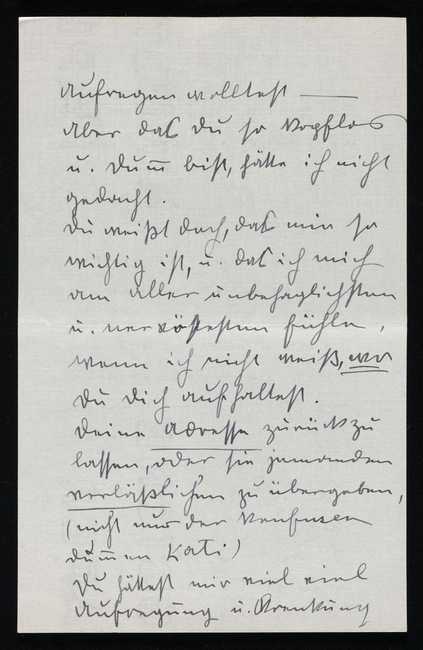 aufregen wolltest —
aber das du so kopflos
u. dum̅ bist, hätte ich nicht
gedacht.
Du weißt doch, das mir so
wichtig ist, u. das ich mich
am aller unbehaglichsten
u. nervösesten fühle,
wenn ich nicht weiß, wo
Du Dich aufhaltest.
Deine Adresse zurückzu
lassen, oder sie jemanden
verläßlichen zu übergeben,
(nicht nur der konfusen
dum̅en Kati)
Du hättest mir viel viel
Aufregung u. Krenkung